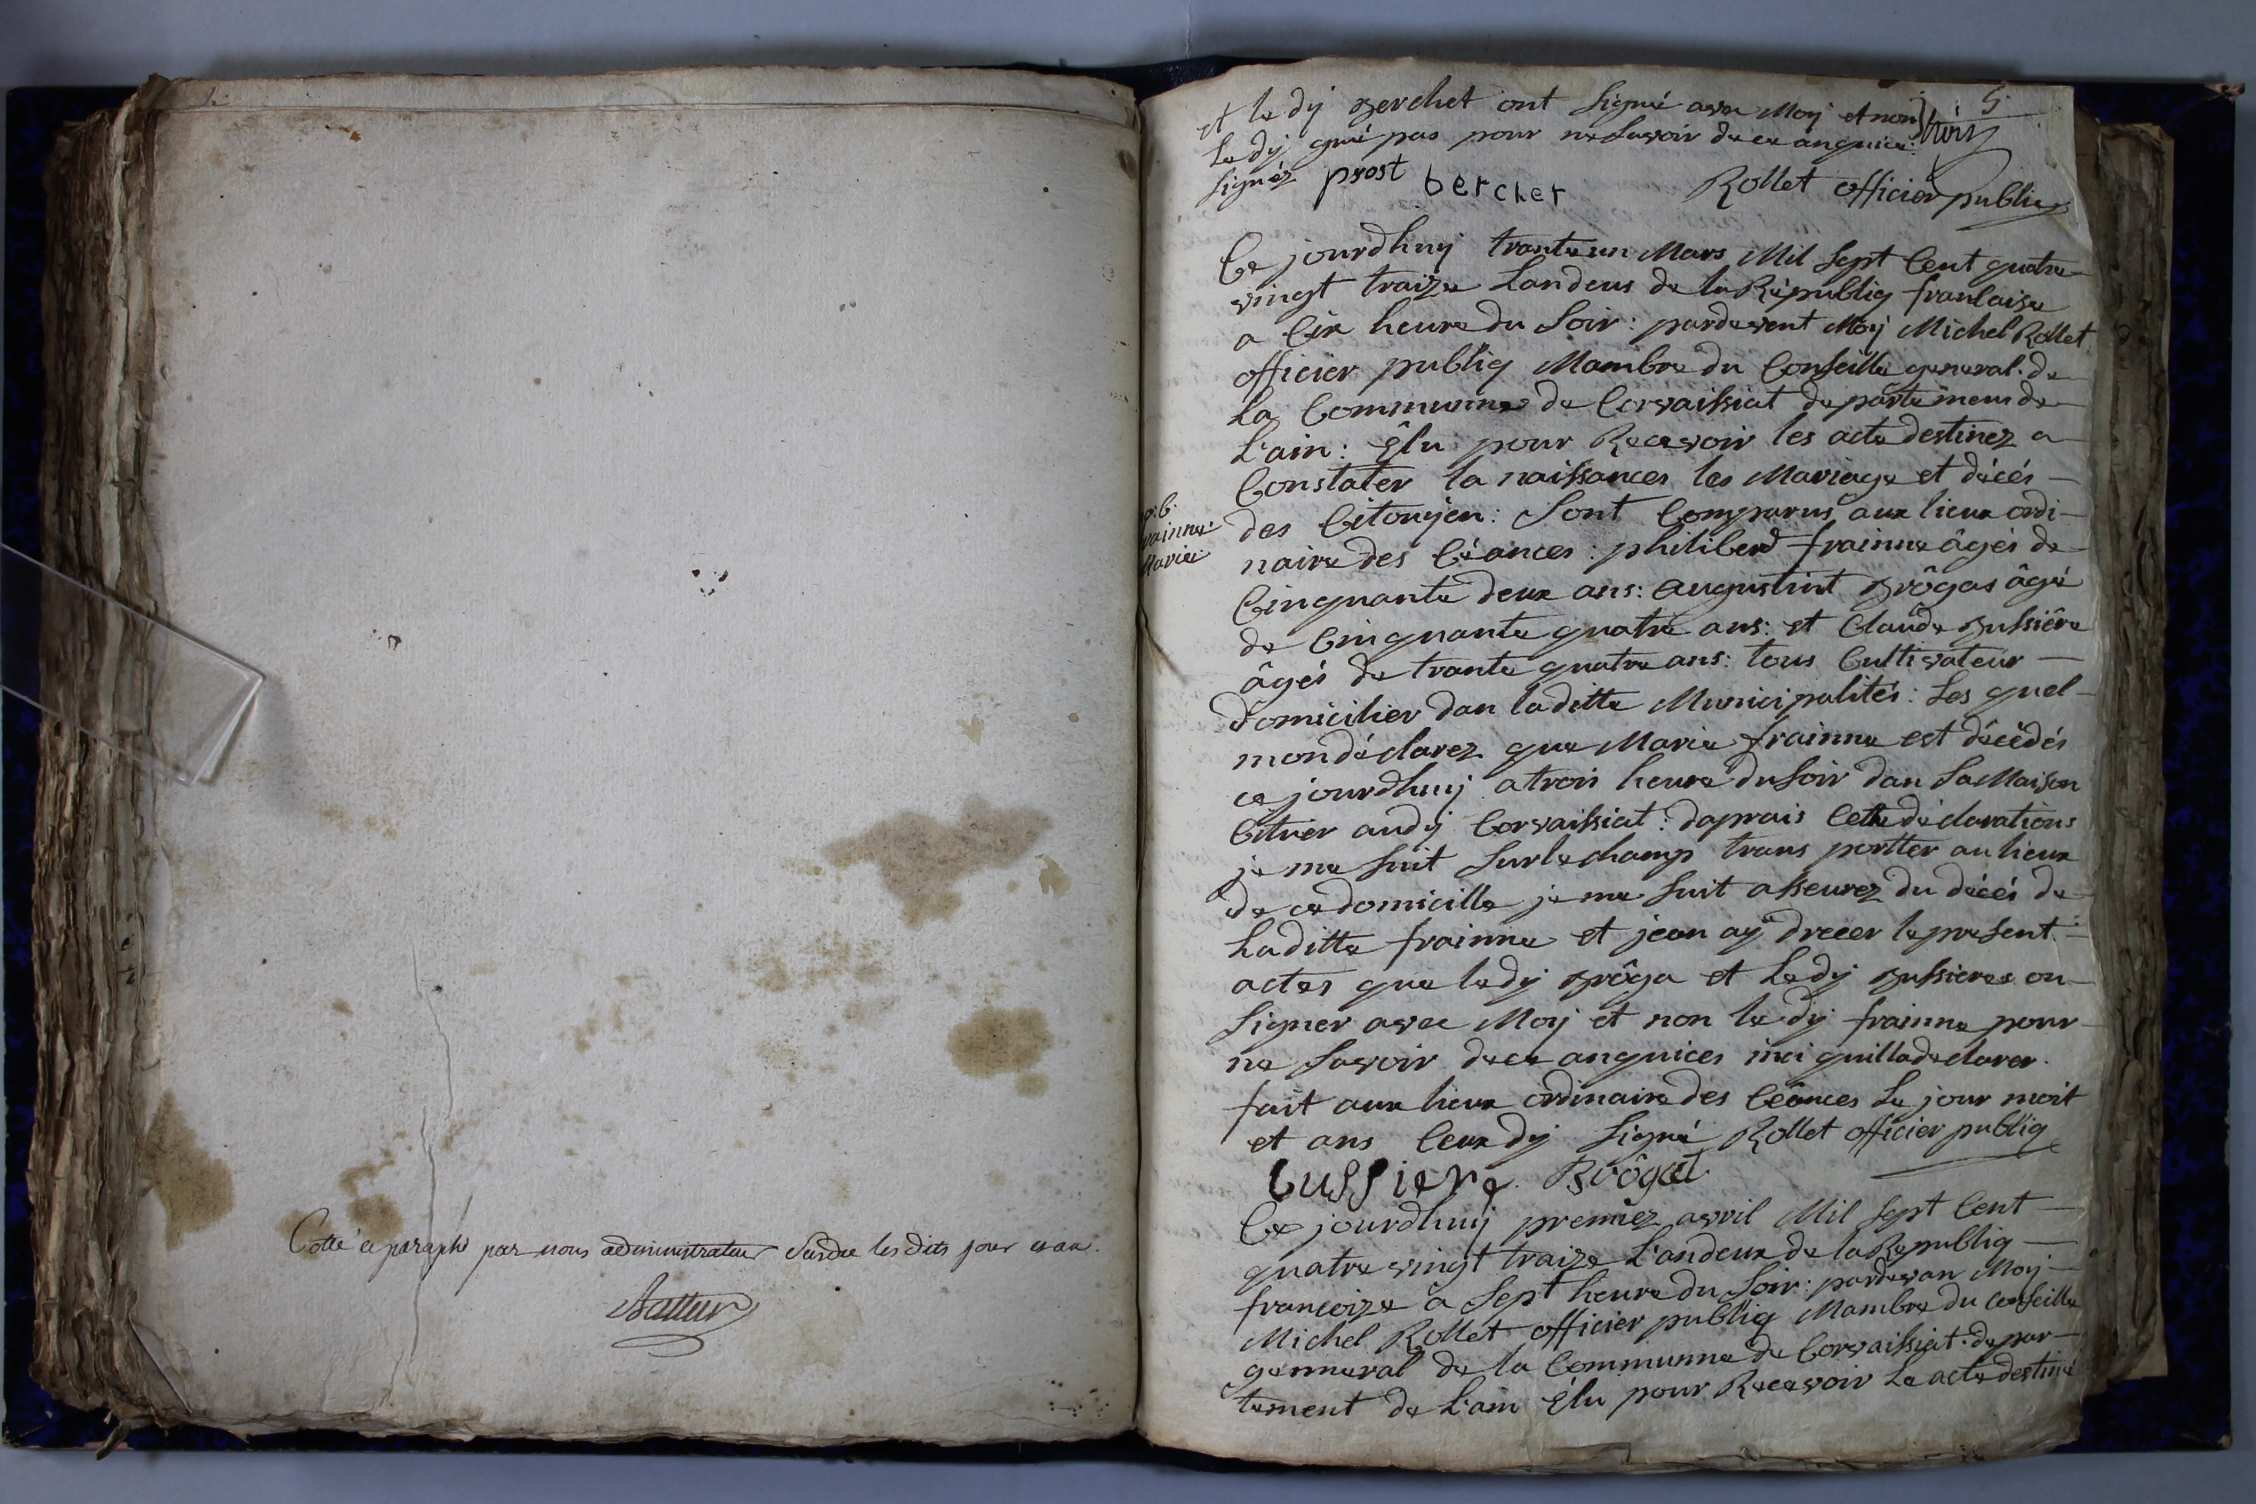 Cotté et paraphé par nous administrateur Susdit les dits jour et an.
et le dy berchet ont Signé avec Moy et non
Le dy gné pas pour ne Savoir de ce anquice:
Signéz prost bercher Rollet officier publiq
5
Ce jourdhuy trante un Mars Mil Sept Cent quatre
vingt traize Landeus de la Républiq franCaise
a Cix heure du Soir: pardevent Moy Michel Rollet
officier publiq Mambre du Conseille general de
La Commune de Corvaissiat departemens de
L'ain: Élu pour Recevoir les acte destinez a
Constater la naissances les Mariage et décés
des Citoyen: Sont Comparus aux lieux ordi-
naire des Céances: philiberd frainne âgés de
p:6:
rainne
Marie
Cinquante deux ans: augustint brôgas âgé
de Cinquante quatre ans: et Claude bussière
âgés de trante quatre ans: tous Cultivateur
domicilier dan laditte Municipalités: Les quel
mon déclarez que Marie frainne est décédés
ce jourdhuy a trois heure du Soir dan Sa Maison
Cituer audy Corvaissiat: daprais Cette déclarations
je me Suit Surlechamp trans portter au lieux
de ce domicille je me Suit asseurez du décés de
Laditte frainne et jean ay drecer le present
actes que le dy brôga et Le dy bussieres on
Signer avec Moy et non le dy frainne pour
ne Savoir de ce anquices inci quilla declarer.
fait aux lieux ordinaire des Céances Le jour moit
et ans Ceux dy Signé Rollet officier publiq
bussiere Brôgat
Ce jourdhuy premiez avril Mil Sept Cent
quatre vingt traize L'andeux de la Republiq
francoize a Sept heure du Soir: pardevan Moy
Michel Rollet officier publiq Mambre du Conseille
genneral de la Communne de Corvaissiat depar-
tement de L'ain Élu pour Recevoir Le acte destiné